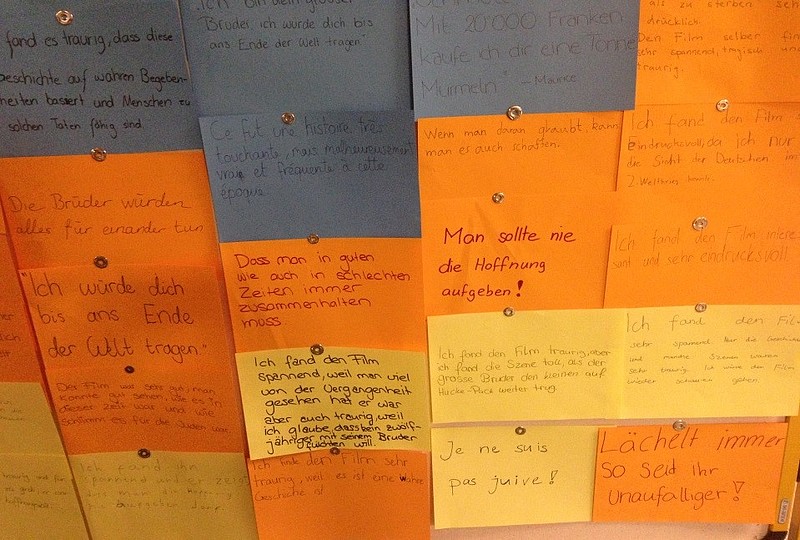 fand es traurig, dass diese
Geschichte auf wahren Begeben-
heiten basiert und Menschen zu
solchen Taten fähig sind.
Die Brüder würden
alles für einander tun
"Ich würde dich
bis ans Ende
der Welt tragen."
Der Film war sehr gut, man
konnte gut sehen, wie es in
dieser Zeit war und wie
schlimm es für die Juden war.
Ich fand ihn
spannend und er zeigt
Ich bin dein grosser
Bruder, ich würde dich bis
ans Ende der Welt tragen"
Ce fut une histoire très
touchante, mais malheureusement
vraie et fréquente à cette
époque
Dass man in guten
wie auch in schlechten
Zeiten immer
zusammenhalten
muss.
Ich fand den Film
spannend, weil man viel
von der Vergangenheit
gesehen hat er war
aber auch traurig, weil
ich glaube, dass kein zwölf-
jähriger mit seinem Bruder
flüchten will.
Ich finde den Film sehr
traurig, weil es ist eine wahre
Geschichte ist
Mit 20'000 Franken
kaufe ich dir eine Tonne
Murmeln" - Maurice
Wenn man daran glaubt, kann
man es auch schaffen.
Man sollte nie
die Hoffnung
aufgeben!
Ich fand den Film traurig, aber
ich fand die Szene toll, als der
grosse Bruder den kleinen auf
Hucke-Pack weiter trug.
Je ne suis
pas juive!
als zu sterben sehr
drücklich.
Den Film selber
sehr spannend, tragisch und
traurig.
Ich fand den Film
eindrucksvoll, da ich nur
die Sicht der Deutschen im
2. Weltkrieg
Ich fand den Film
und sehr eindrucksvoll
Ich fand den
sehr spannend
und manche Szenen waren
sehr traurig. Ich würde den Film
wieder schauen gehen.
Lächelt immer
so seid ihr
Unaufälliger!